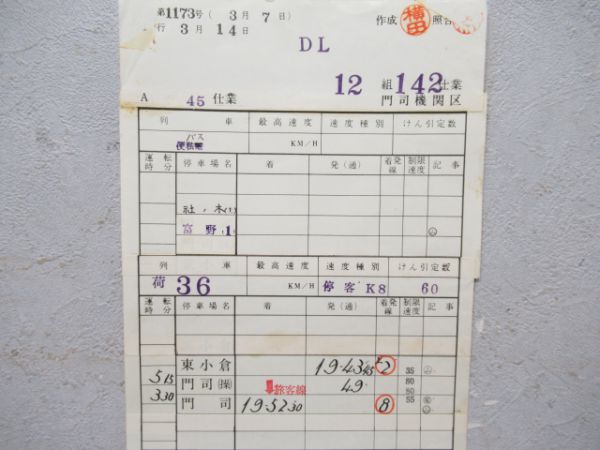 第1173号 ( 3月 7日 )
行 3月 14日
作成 横田 照合
DL
12 組 142 仕業
A 45 仕業 門司機関区
列 車 最高速度 速度種別 けん引定数
バス
便乗 KM/H
運転時分 停車場名 着 発(通) 着発線 制限速度 記事
社ノ木(1)
富野(1)
列 車 最高速度 速度種別 けん引定数
荷 36 KM/H 停客 K8 60
運転時分 停車場名 着 発(通) 着発線 制限速度 記事
東小倉 19-43 45 2 35
5 15 門司(操) 49 80
旅客線 50
3 30 門司 19-52 30 8 55